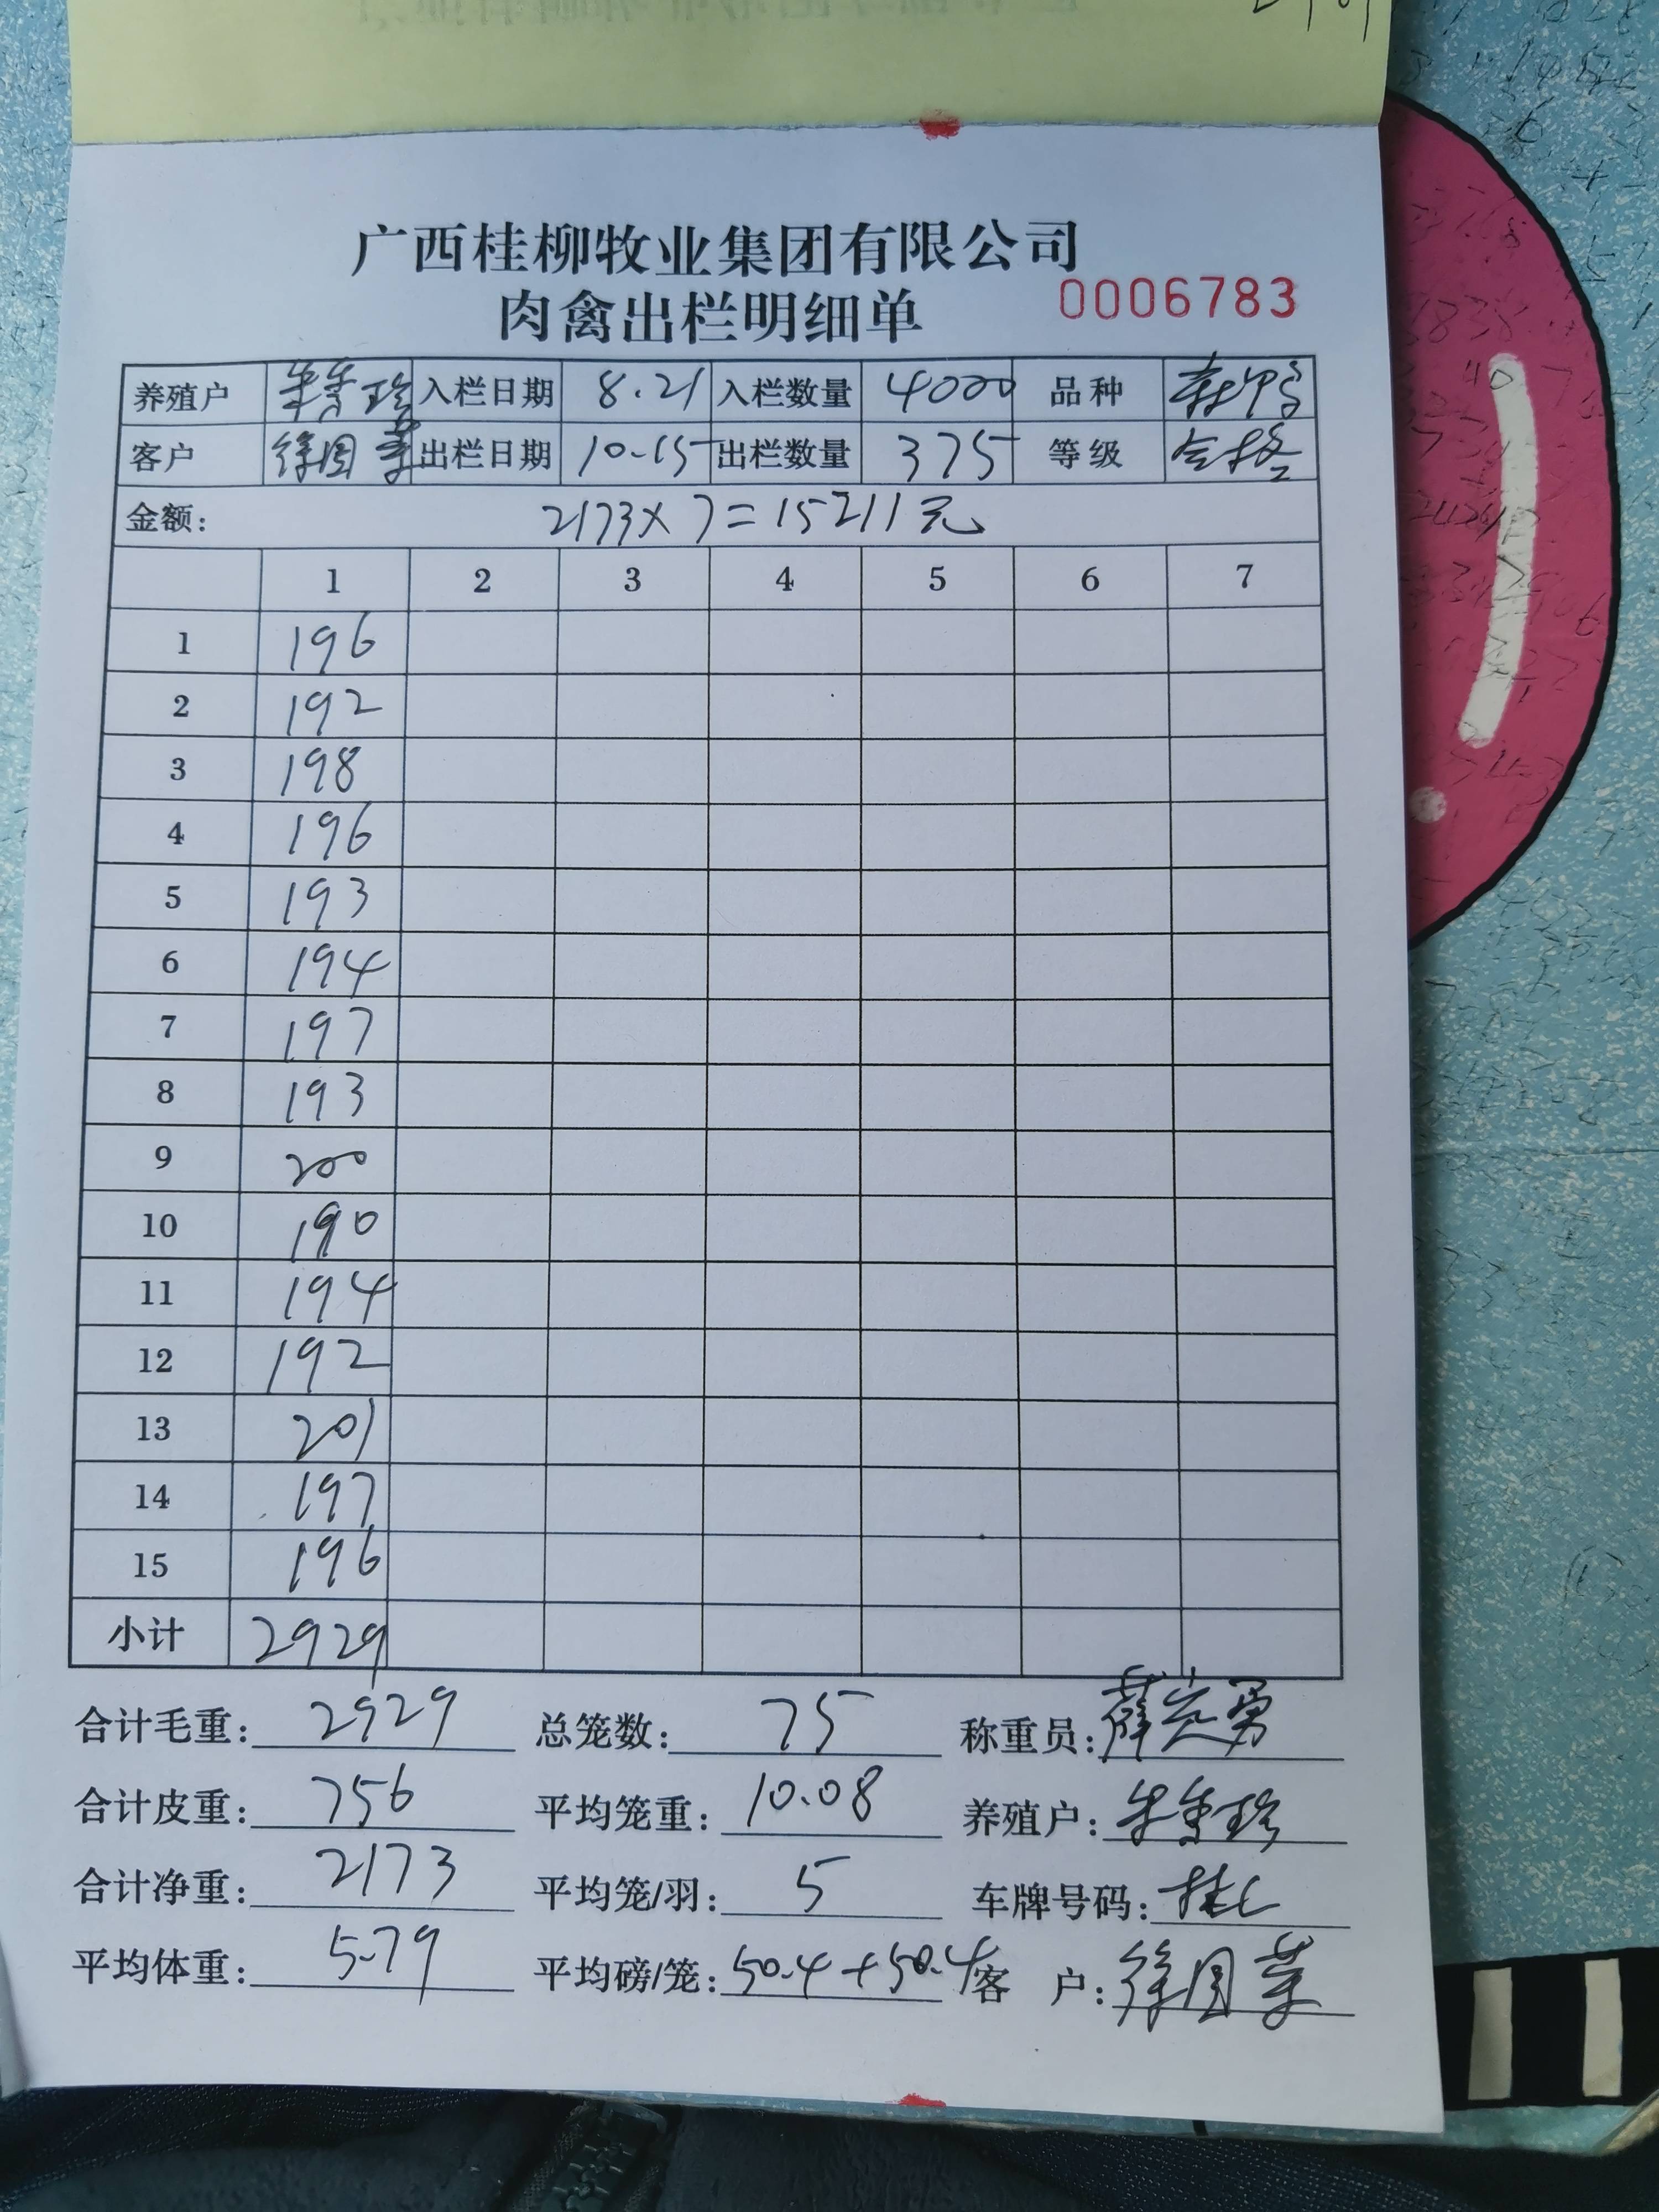 广西桂柳牧业集团有限公司
肉禽出栏明细单 0006783
养殖户 入栏日期 8.21 入栏数量 4000 品种
客户 徐国 出栏日期 10-15 出栏数量 375 等级 合格
金额: 2173×7=15211元
1 2 3 4 5 6 7
1 196
2 192
3 198
4 196
5 193
6 194
7 197
8 193
9 200
10 190
11 194
12 192
13 201
14 197
15 196
小计 2929
合计毛重: 2929 总笼数: 75 称重员: 薛定勇
合计皮重: 756 平均笼重: 10.08 养殖户:
合计净重: 2173 平均笼/羽: 5 车牌号码: 桂C
平均体重: 5.79 平均磅/笼: 50.4+50.4 客 户: 徐国